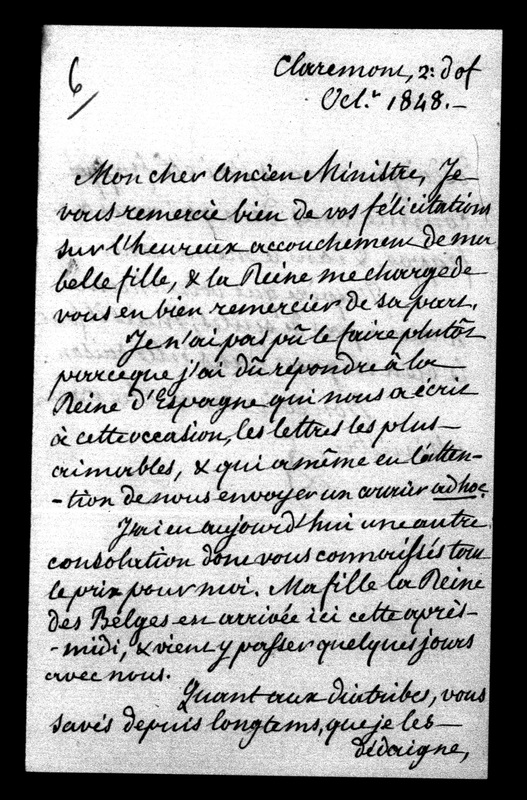 6
Claremont, 2: d of
Oct.r 1848.-
Mon cher Ancien Ministre, Je
vous remercie bien de vos félicitations
sur l'heureux accouchement de ma
belle fille, & la Reine me charge de
vous en bien remercier de sa part.
Je n'ai pas pû le faire plutôt
parceque j'ai dû répondre à la
Reine d'Espagne qui nous a écrit
à cette occasion, les lettres les plus
aimables, & qui a même eu l'atten-
-tion de nous envoyer un courier ad hoc.
J'ai eu aujourd'hui une autre
consolation dont vous connaissés tout
le prix pour moi. Ma fille la Reine
des Belges est arrivée ici cette après-
-midi, & vient y passer quelques jours
avec nous.
Quant aux diatribes, vous
savés depuis longtems, que je les
dédaigne,